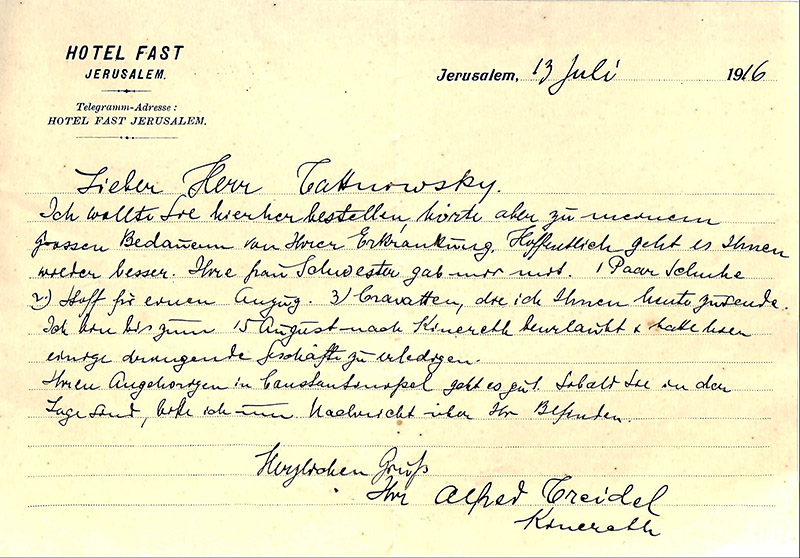 HOTEL FAST
JERUSALEM.
Telegramm-Adresse:
HOTEL FAST JERUSALEM.
Jerusalem, 13 Juli 1916
Lieber Herr
Ich wollte Sie hierher bestellen, hörte aber zu meinem
grossen Bedauern von Ihrer Erkrankung. Hoffentlich geht es Ihnen
wieder besser. Ihre frau Schwester gab mir mit. 1 Paar Schuhe
2.) Stoff für einen Anzug. 3) Cravatten, die ich Ihnen heute zusende.
Ich bin bis zum 15 August nach Kinereth beurlaubt & hatte hier
einige dringende Geschäfte zu erledigen.
Ihren Angehörigen in Constantinopel geht es gut. Sobald Sie in der
Lage sind, bitte ich um Nachricht über Ihr Befinden.
Herzlichen Gruß
Ihr Alfred Treidel
Kinereth